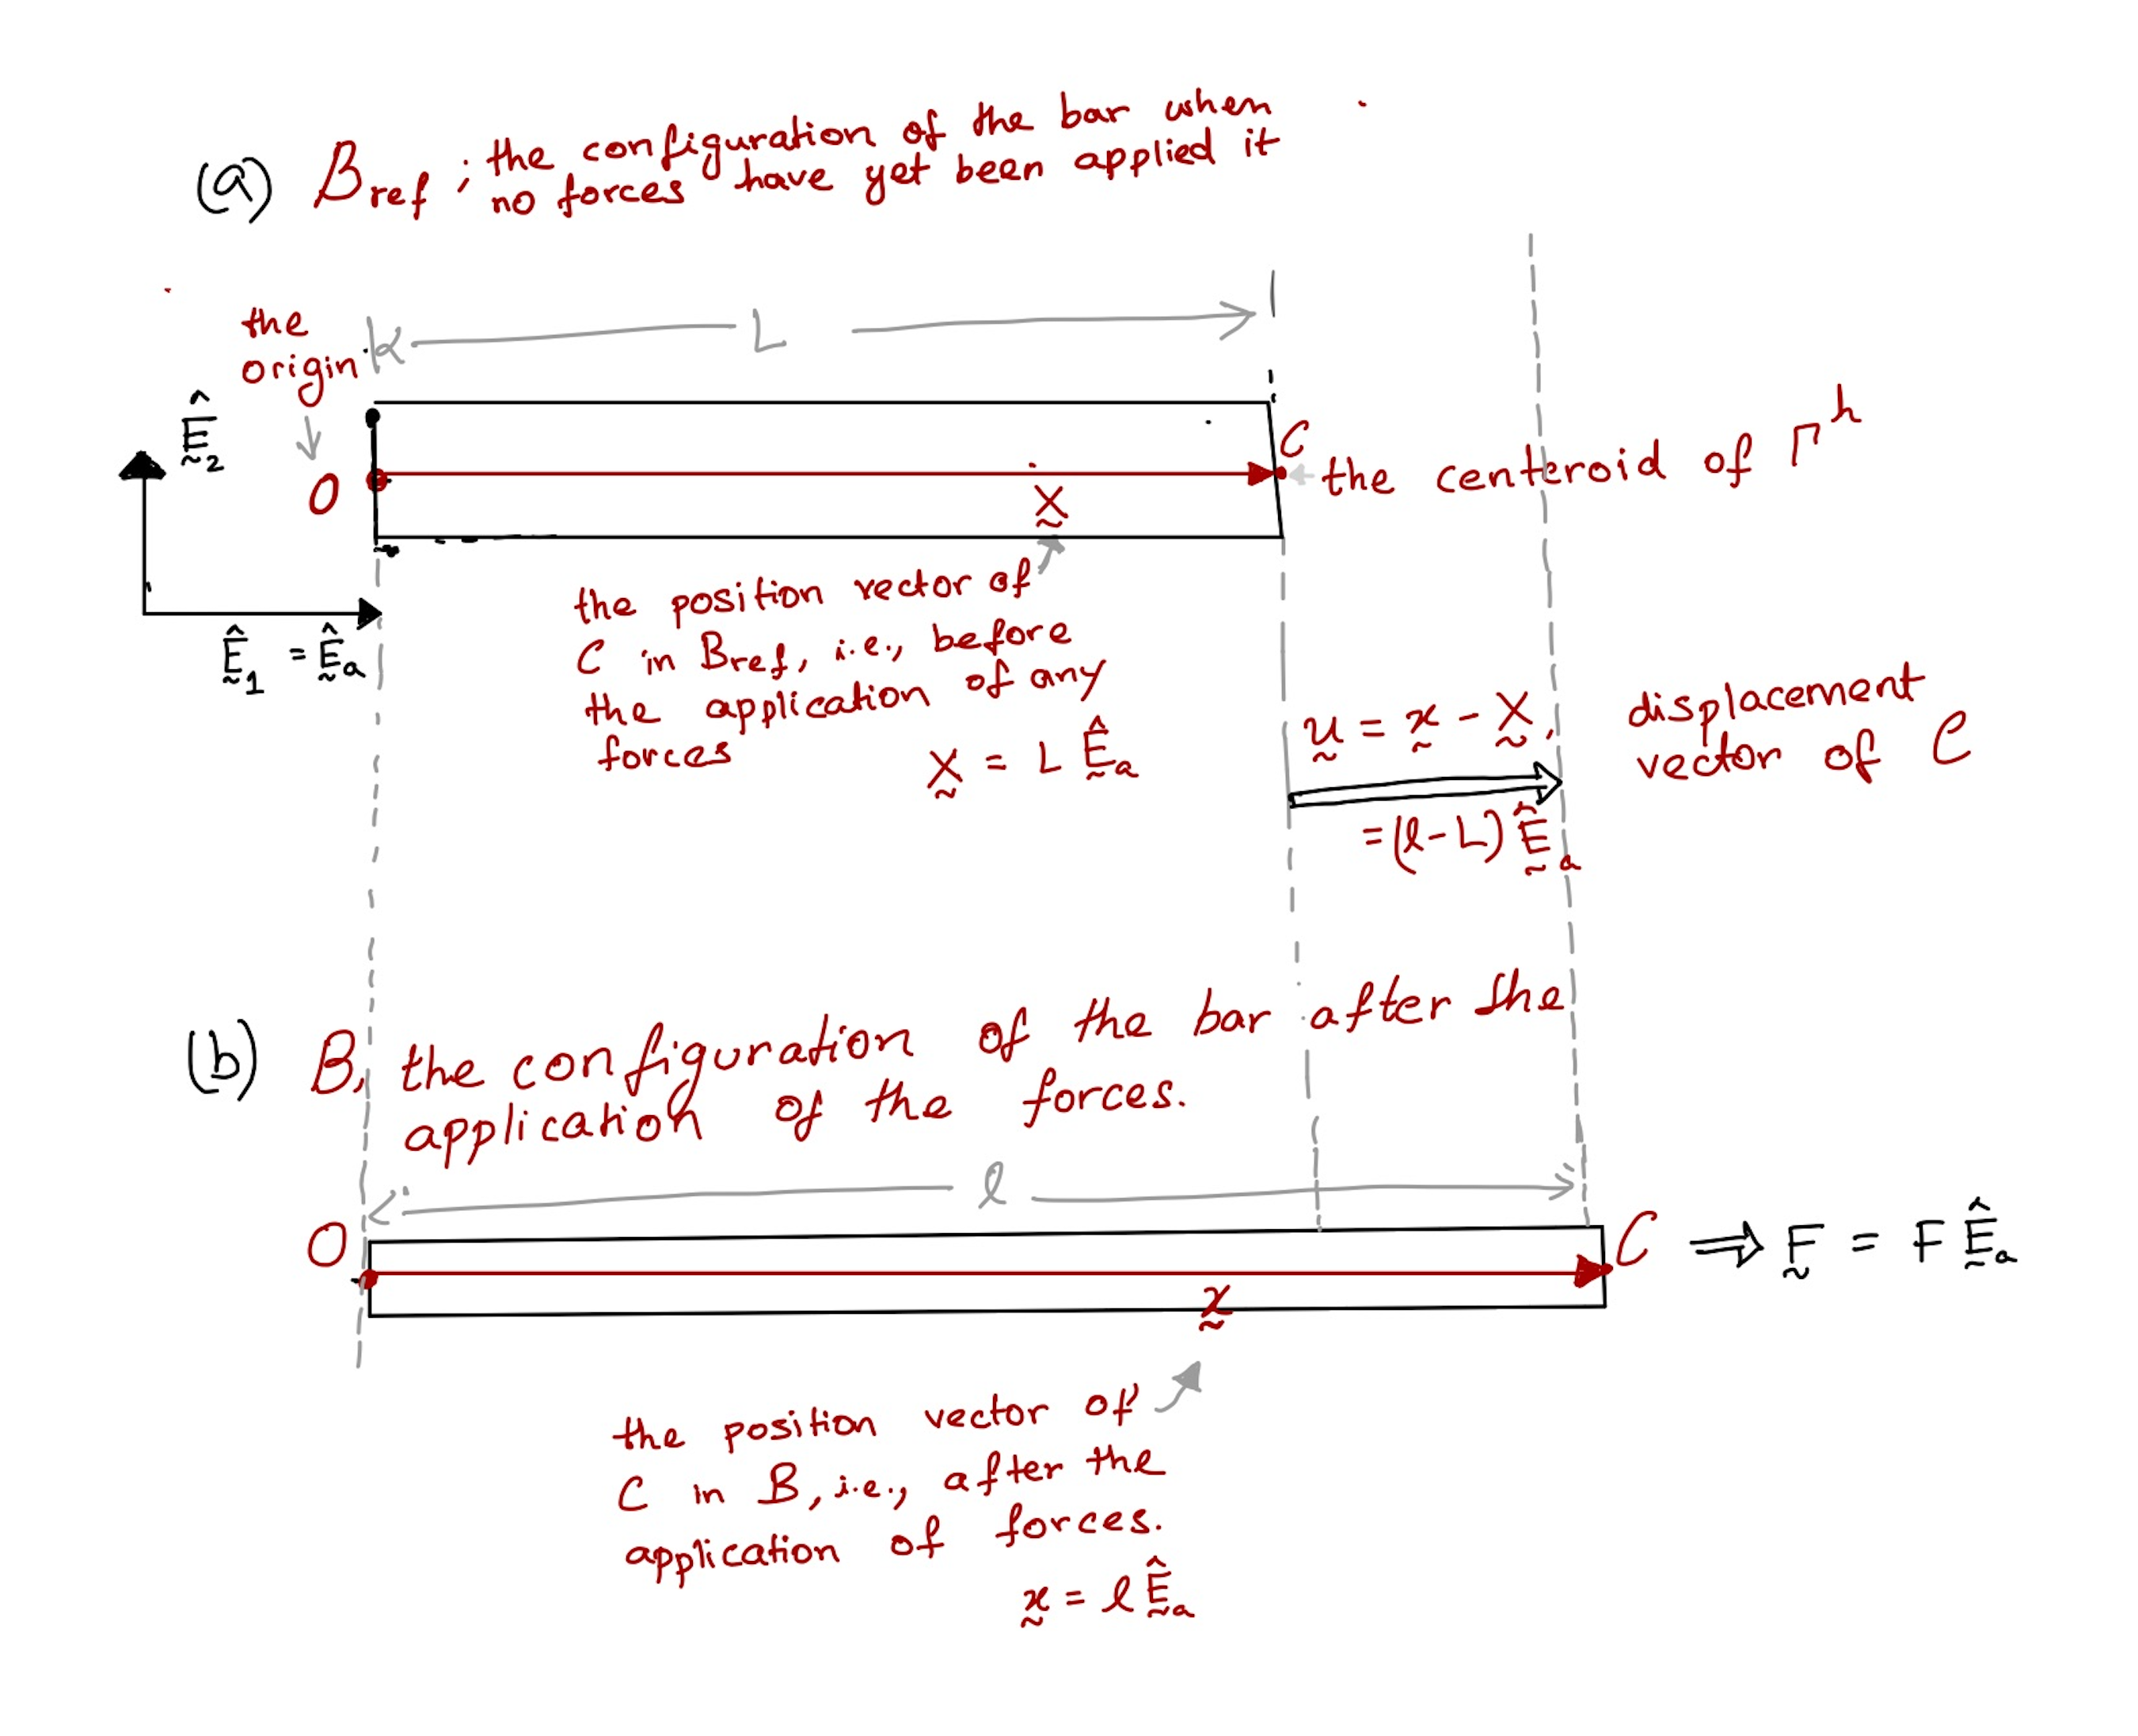 (a) B_ref ; the configuration of the bar when
no forces have yet been applied it
the
origin
L
Ê_2
O
C
the centeroid of Γ^h
X
Ê_1 = Ê_a
the position vector of
C in B_ref, i.e., before
the application of any
forces
X = L Ê_a
u = x - X,
= (l-L) Ê_a
displacement
vector of C
(b) B, the configuration of the bar after the
application of the forces.
l
O
C
⇒ F = F Ê_a
x
the position vector of
C in B, i.e., after the
application of forces.
x = l Ê_a